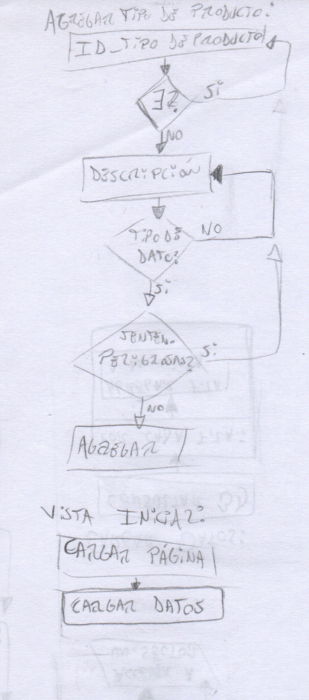 AGREGAR TIPO DE PRODUCTO:
ID_TIPO DE PRODUCTO
∃?
Sí
NO
DESCRIPCIÓN
TIPO DE
DATO?
NO
Sí
SENTEN.
PELIGROSAS?
Sí
NO
AGREGAR
VISTA INICIAL:
CARGAR PÁGINA
CARGAR DATOS